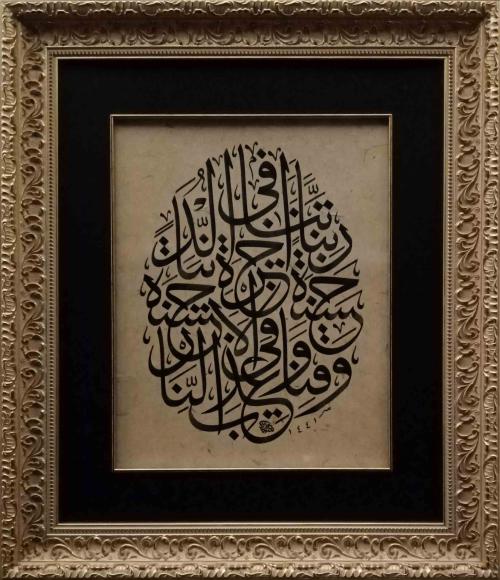 ربنا آتنا في الدنيا
حسنة وفي الآخرة حسنة
وقنا عذاب النار
١٤٤١